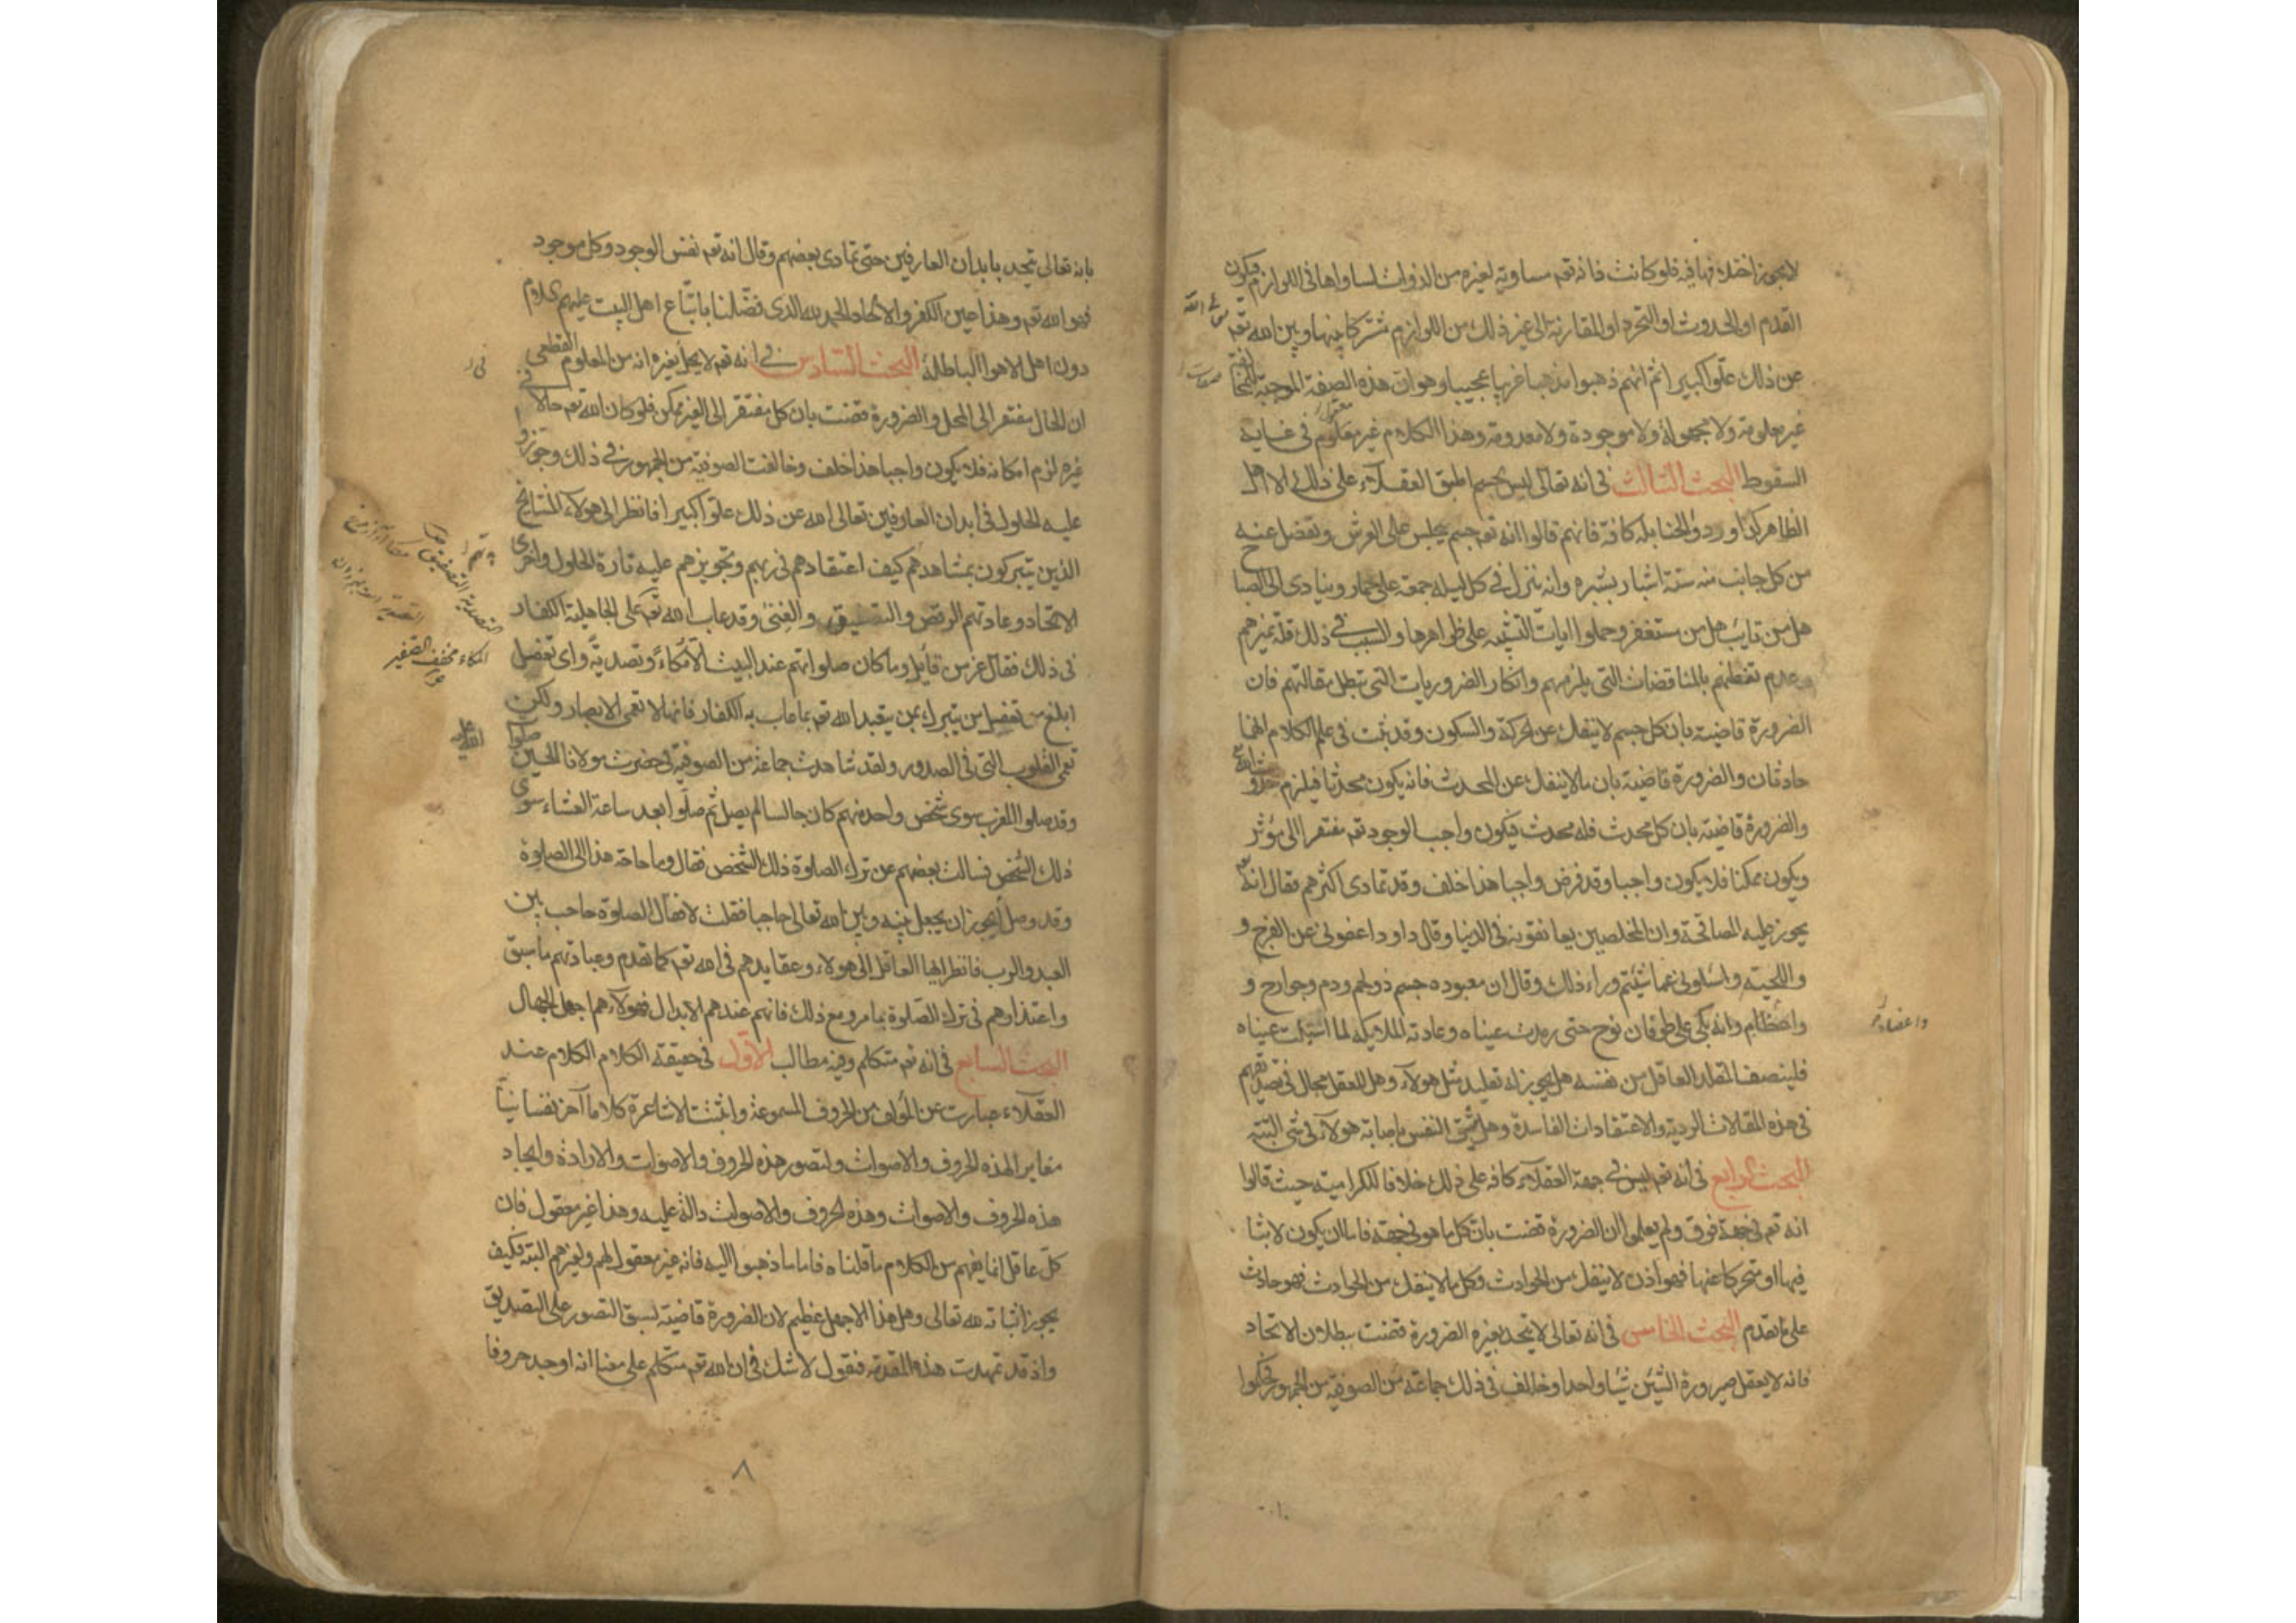 لا يجوز اختلافها فيه فلو كانت ذاته تعه مساوية لغيره من الذوات لساواها في اللوازم فيكون
القدم او الحدوث او التجرد او المقارنة الى غير ذلك من اللوازم مشتركا بينها وبين الله تعه
عن ذلك علوا كبيرا ثم انهم ذهبوا مذهبا غريبا عجيبا وهو ان هذه الصفة الموجبة للمخالفة
غير معلومة ولا مجهولة ولا موجودة ولا معدومة وهذا الكلام غير معلوم في غاية
السقوط البحث الثالث في انه تعالى ليس بجسم اطبق العقلاء على ذلك الا اهل
الظاهر كداورد والحنابلة كافة فانهم قالوا انه تعه جسم يجلس على العرش ويفضل عنه
من كل جانب منه ستة اشبار بشبره وانه ينزل في كل ليلة جمعة على حمار وينادى الى الصبا
هل من تايب هل من مستغفر وحملوا ايات التشبيه على ظواهرها والسبب في ذلك قلة تميزهم
وعدم تفطنهم بالمناقضات التي يلزمهم وانكار الضروريات التي تبطل مقالتهم فان
الضرورة قاضية بان كل جسم لا ينفك عن الحركة والسكون وقد ثبت في علم الكلام انهما
حادثان والضرورة قاضية بان ما لا ينفك عن المحدث فانه يكون محدثا فيلزم حدوث الله تع
والضرورة قاضية بان كل محدث فله محدث فيكون واجب الوجود تعه مفتقرا الى مؤثر
ويكون ممكنا فلا يكون واجبا وقد فرض واجبا هذا خلف وقد تمادى اكثرهم فقال انه تع
يجوز عليه المصافحة وان المخلصين يعانقونه في الدنيا وقال داود اعفوني عن الفرج و
واللحية واسئلوني عما شيتم وراء ذلك وقال ان معبوده جسم ذو لحم ودم وجوارح و
واعضاء
واعظام وانه بكى على طوفان نوح حتى رمدت عيناه وعادته الملايكة لما اشتكت عيناه
فلينصف المقلد العاقل من نفسه هل يجوز له تقليد مثل هولاء وهل للعقل مجال في تصديقهم
في هذه المقالات الردية والاعتقادات الفاسدة وهل تثق النفس باصابة هولاء في شي البتة
البحث الرابع في انه تعه ليس في جهة العقلاء كافة على ذلك خلافا للكرامية حيث قالوا
انه تعه في جهة فوق ولم يعلموا ان الضرورة قضت بان كل ما هو في جهة فاما ان يكون لابثا
فيها او متحركا عنها فهو اذن لا ينفك من الحوادث وكل ما لا ينفك من الحوادث فهو حادث
على ما تقدم البحث الخامس في انه تعالى لا يتحد بغيره الضرورة قضت ببطلان الاتحاد
فانه لا يعقل صيرورة الشيئين شيئا واحدا وخالف في ذلك جماعة من الصوفية من الجمهور فحكموا
بانه تعالى يتحد بابدان العارفين حتى تمادى بعضهم وقال انه تعه نفس الوجود وكل موجود
فهو الله تعه وهذا عين الكفر والالحاد الحمد لله الذى فضلنا باتباع اهل البيت عليهم السلام
دون اهل الاهوا الباطلة البحث السادس في انه تعه لا يحل بغيره انه من المعلوم القطعى
ان الحال مفتقر الى المحل والضرورة قضت بان كل مفتقر الى الغير ممكن فلو كان الله تعه حالا في
غيره لزم امكانه فلا يكون واجبا هذا خلف وخالفت الصوفية من الجمهور في ذلك وجوزوا
عليه الحلول في ابدان العارفين تعالى الله عن ذلك علوا كبيرا فانظر الى هولاء المشايخ
الذين يتبركون بمشاهدهم كيف اعتقادهم في ربهم وتجويزهم عليه تارة الحلول واخرى
الاتحاد وعادتهم الرقص والتصفيق والغنى وقد عاب الله تعه على الجاهلية الكفار
التصدية التصفيق
في ذلك فقال عز من قايل وما كان صلواتهم عند البيت الا مكاء وتصدية واى تغفل
المكاء مخفف الصفير
ابلغ من تغفل من يتبرك بمن يتعبد الله تعه بما عاب به الكفار فانها لا تعمى الابصار ولكن
تعمى القلوب التي في الصدور ولقد شاهدت جماعة من الصوفية في حضرت مولانا الحسين صلوات
الله عليه
وقد صلوا المغرب سوى شخص واحد منهم كان جالسا لم يصل ثم صلوا بعد ساعة العشاء سوى
ذلك الشخص فسالت بعضهم عن ترك الصلوة ذلك الشخص فقال وما حاجة هذا الى الصلوة
وقد وصل ايجوز ان يجعل بينه وبين الله تعالى حاجبا فقلت لا فقال الصلوة حاجب بين
العبد والرب فانظر ايها العاقل الى هولاء وعقايدهم في الله تعه كما تقدم وعبادتهم ما سبق
واعتذارهم في ترك الصلوة ما مر ومع ذلك فانهم عندهم الابدال فهولاء هم اجهل الجهال
البحث السابع في انه تعه متكلم وفيه مطالب الاول في حقيقة الكلام الكلام عند
العقلاء عبارت عن المؤلف من الحروف المسموعة واثبتت الاشاعرة كلاما آخر نفسانيا
مغايرا لهذه الحروف والاصوات ولتصور هذه الحروف والاصوات والارادة وايجاد
هذه الحروف والاصوات وهذه الحروف والاصوات دالة عليه وهذا غير معقول فان
كل عاقل انما يفهم من الكلام ما قلناه فاما ما ذهبوا اليه فانه غير معقول لهم ولغيرهم البتة فكيف
يجوز اثباته لله تعالى وهل هذا الا جهل عظيم لان الضرورة قاضية لسبق التصور على التصديق
واذ قد تمهدت هذه المقدمة فنقول لا شك في ان الله تعه متكلم على معنا انه اوجد حروفا
٨